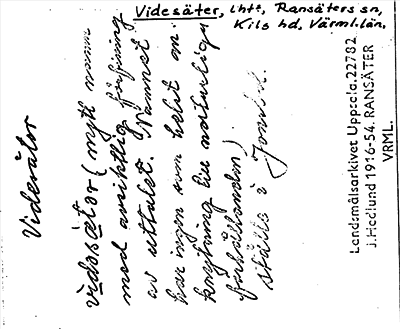 Videsäter, lhtt, Ransäters sn,
Kils hd, Värml. län.
Videsäter
vidosætor (nytt namn
med avsiktlig förfining
av uttalet. Namnet
har ingen som helst an-
knytning till naturliga
förhållanden)
ställe i
Landsmålsarkivet Uppsala. 22782
J. Hedlund 1916-54. RANSÄTER
VRML.